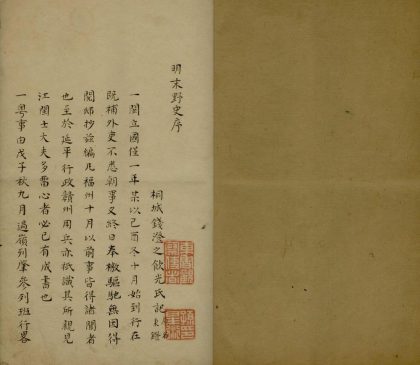 明末野史序
桐城錢澄之飲光氏記
一閩立國僅一年某以己酉冬十月始到行在
既補外吏不悉朝事又終日奉檄驅馳無因得
閱邸抄玆編凡福州十月以前事皆得諸聞者
也至於延平行政贛州用兵亦祇識其所親見
江閩士大夫多留心者必已有成書也
一粵事由戊子秋九月過嶺列肇參列班行畧